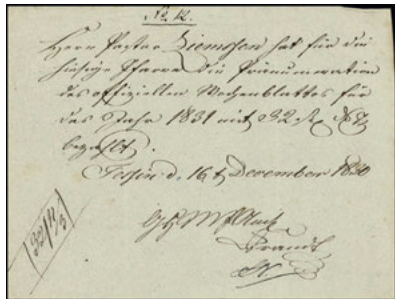 No. 12.
Herr Pastor Ziemssen hat für die
hiesige Pfarre die Pränumeration
des offiziellen Wochenblattes für
das Jahr 1831 mit 32
bezahlt.
Tessin d. 16 t December 1830
Brandt